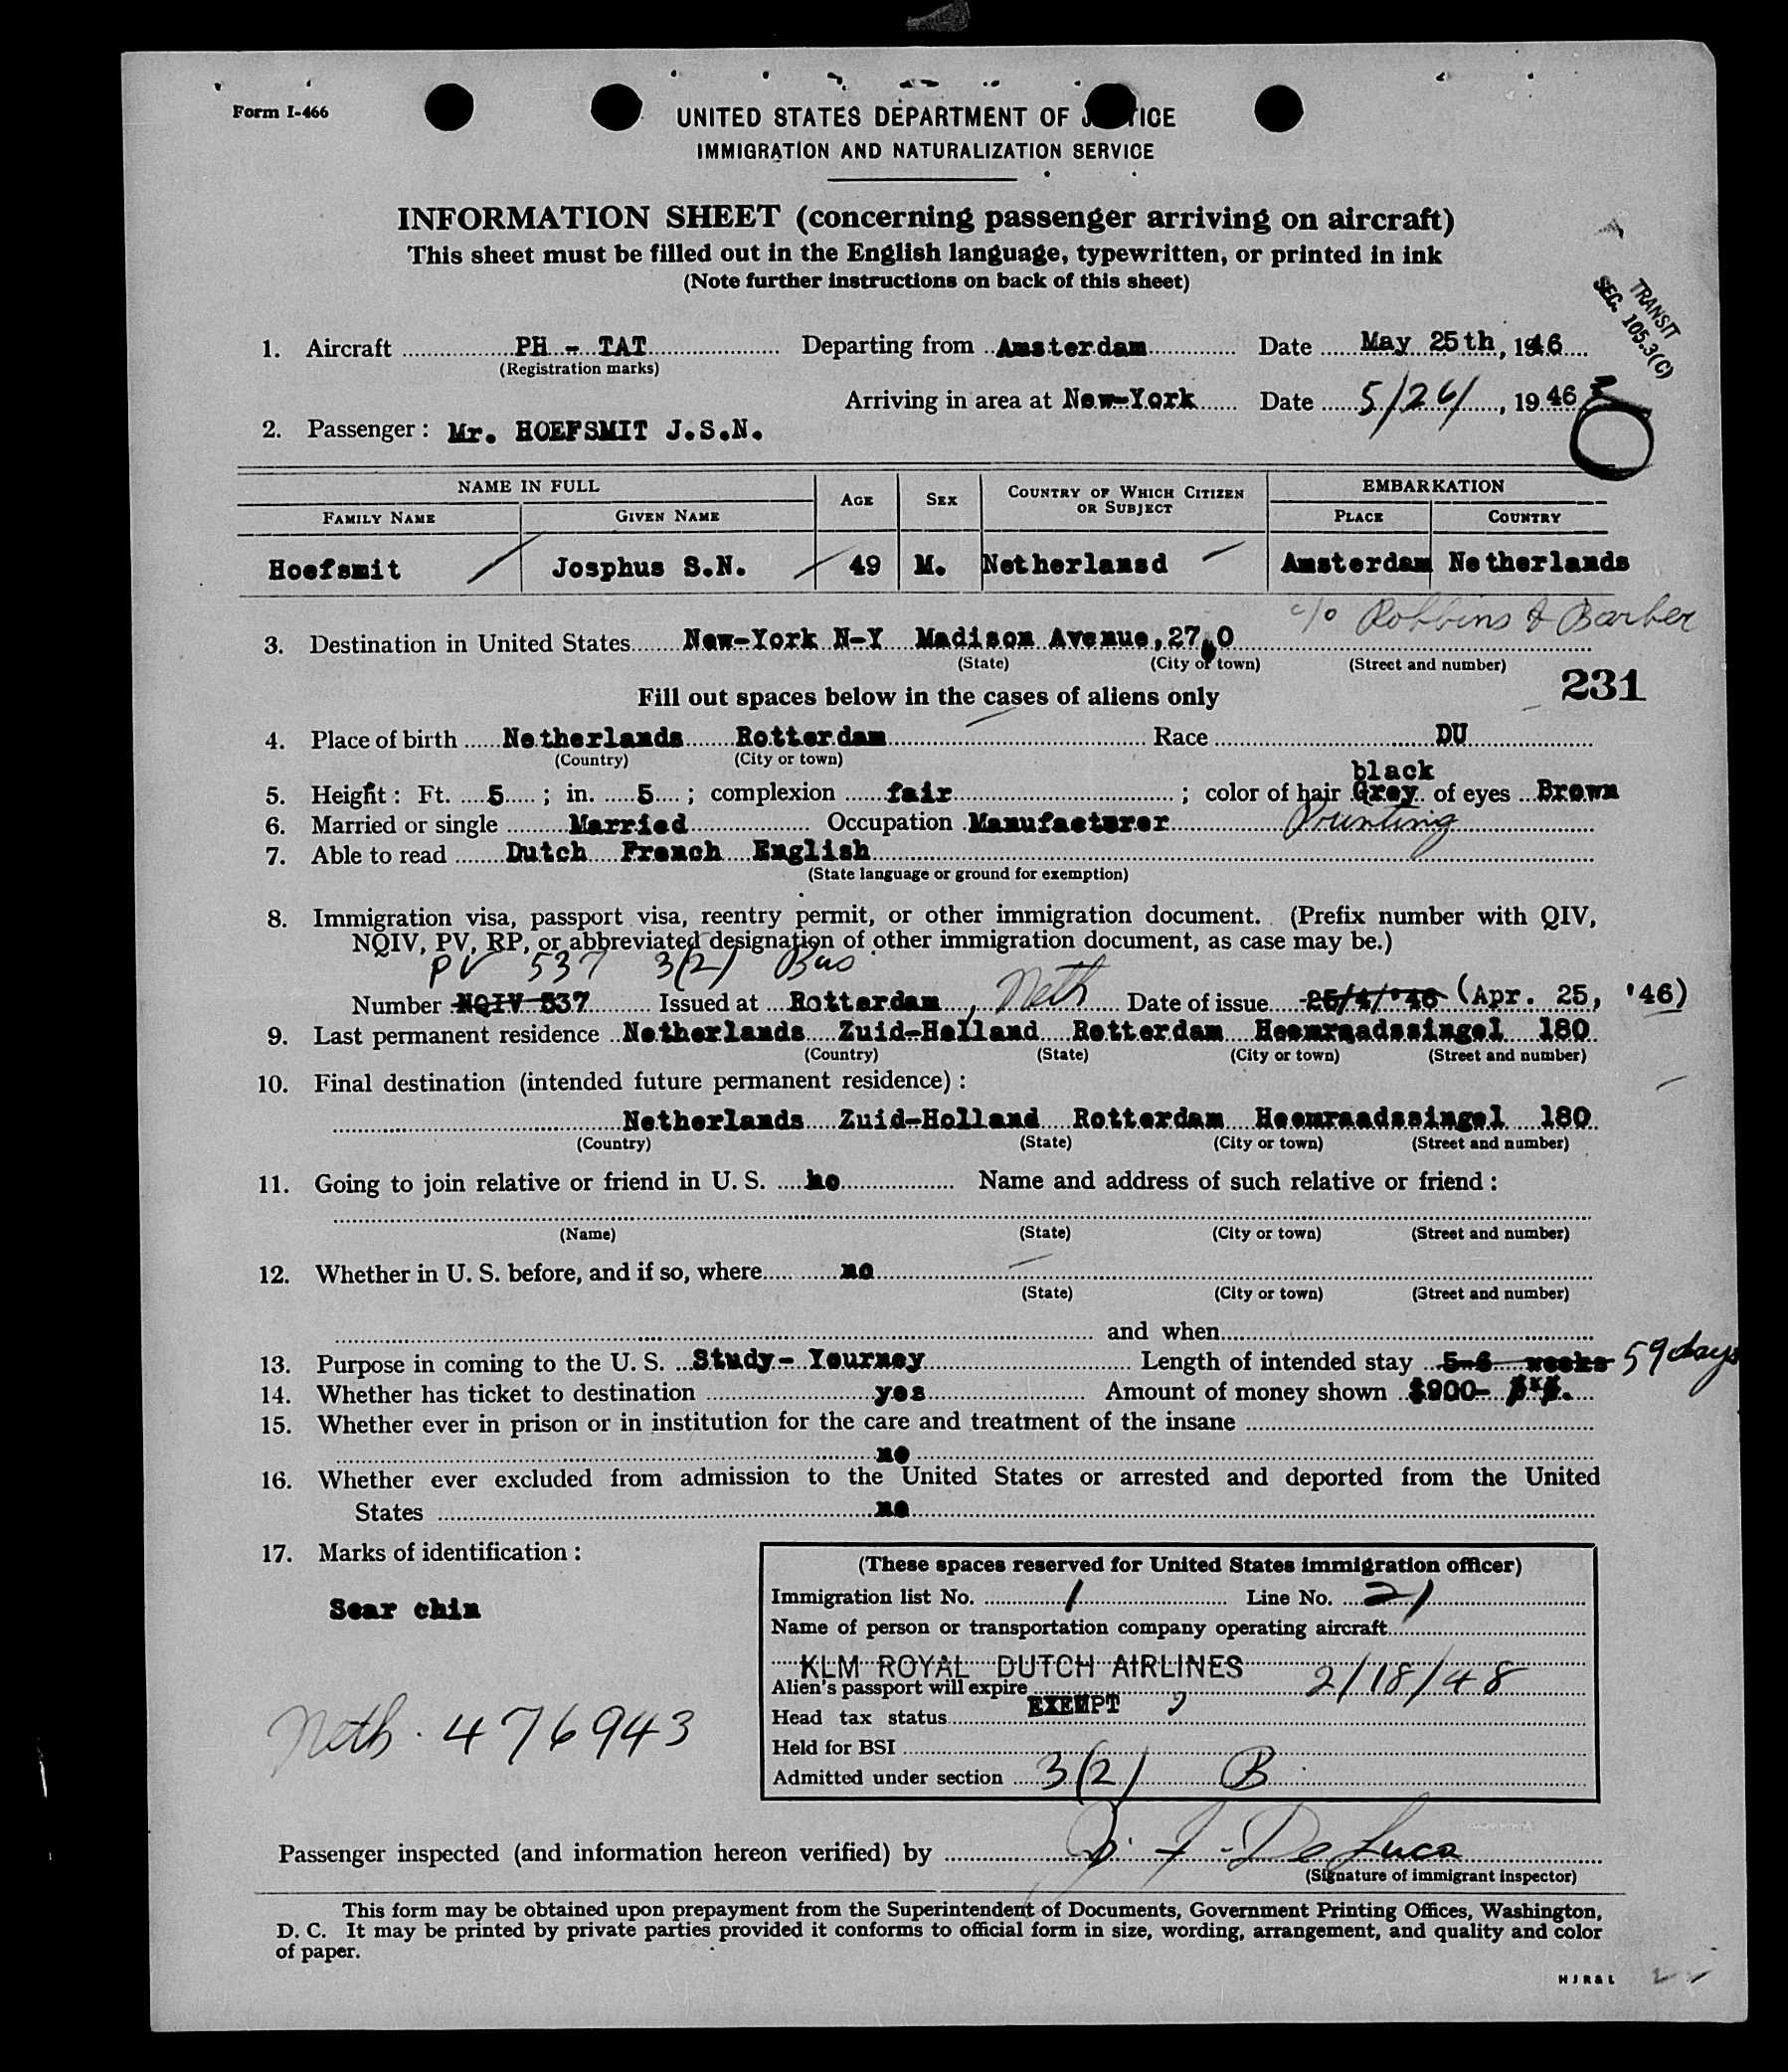 Form I-466
UNITED STATES DEPARTMENT OF J TICE
IMMIGRATION AND NATURALIZATION SERVICE
INFORMATION SHEET (concerning passenger arriving on aircraft)
This sheet must be filled out in the English language, typewritten, or printed in ink
(Note further instructions on back of this sheet)
TRANSIT
SEC. 105.3(C)
1. Aircraft PH - TAT Departing from Amsterdam Date May 25th, 1946
(Registration marks)
Arriving in area at New-York Date 5/26/, 1946
2. Passenger: Mr. HOEFSMIT J.S.N.
NAME IN FULL AGE SEX COUNTRY OF WHICH CITIZEN OR SUBJECT EMBARKATION
FAMILY NAME GIVEN NAME PLACE COUNTRY
Hoefsmit Josphus S.N. 49 M. Netherlansd Amsterdam Netherlands
c/o Robbins & Barber
3. Destination in United States New-York N-Y Madison Avenue, 27 0
(State) (City or town) (Street and number)
Fill out spaces below in the cases of aliens only 231
4. Place of birth Netherlands Rotterdam Race DU
(Country) (City or town)
black
5. Height: Ft. 5; in. 5; complexion fair; color of hair Grey of eyes Brown
6. Married or single Married Occupation Manufacturer Printing
7. Able to read Dutch French English
(State language or ground for exemption)
8. Immigration visa, passport visa, reentry permit, or other immigration document. (Prefix number with QIV,
NQIV, PV, RP, or abbreviated designation of other immigration document, as case may be.)
PV 537 3(2) Bus
Number NQIV 537 Issued at Rotterdam, Neth Date of issue 25/4/'46 (Apr. 25, '46)
9. Last permanent residence Netherlands Zuid-Holland Rotterdam Heemraadssingel 180
(Country) (State) (City or town) (Street and number)
10. Final destination (intended future permanent residence):
Netherlands Zuid-Holland Rotterdam Heemraadssingel 180
(Country) (State) (City or town) (Street and number)
11. Going to join relative or friend in U. S. no Name and address of such relative or friend:
(Name) (State) (City or town) (Street and number)
12. Whether in U. S. before, and if so, where no
(State) (City or town) (Street and number)
and when
13. Purpose in coming to the U. S. Study- Yourney Length of intended stay 5-6 weeks 59 days
14. Whether has ticket to destination yes Amount of money shown $900-
15. Whether ever in prison or in institution for the care and treatment of the insane
no
16. Whether ever excluded from admission to the United States or arrested and deported from the United
States no
17. Marks of identification:
Sear chin
Neth. 476943
(These spaces reserved for United States immigration officer)
Immigration list No. 1 Line No. 21
Name of person or transportation company operating aircraft
KLM ROYAL DUTCH AIRLINES
Alien's passport will expire 2/18/48
Head tax status EXEMPT
Held for BSI
Admitted under section 3(2) B
Passenger inspected (and information hereon verified) by De Luca
(Signature of immigrant inspector)
This form may be obtained upon prepayment from the Superintendent of Documents, Government Printing Offices, Washington,
D. C. It may be printed by private parties provided it conforms to official form in size, wording, arrangement, and quality and color
of paper.
HJR&L